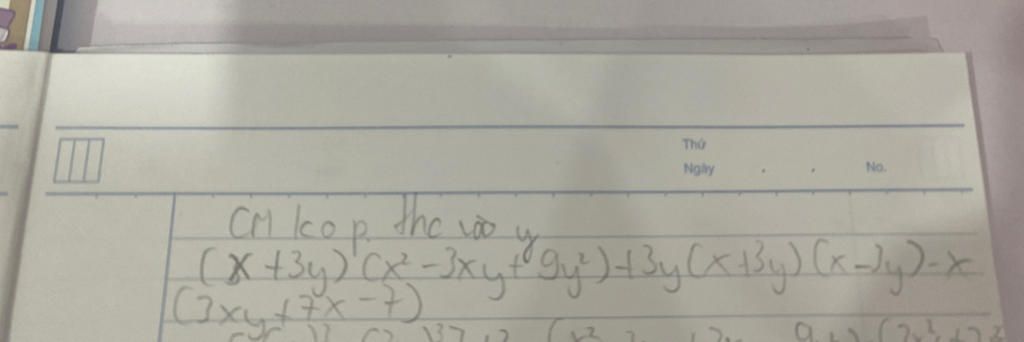 Thứ
Ngày . . No.
CM ko p. thc vào y
(x + 3y) (x² - 3xy + 9y²) + 3y (x + 3y) (x - 3y) - x
(3xy + 7x - 7)